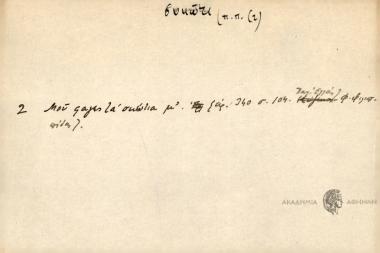 συκώτι (π.π. (2)
2 Μοῦ φαγες τά σκώτια μ'. χφ. 340 σ. 104. Φ. Φιλιπ-
πίδης.
ΑΚΑΔΗΜΙΑ ΑΘΗΝΩΝ